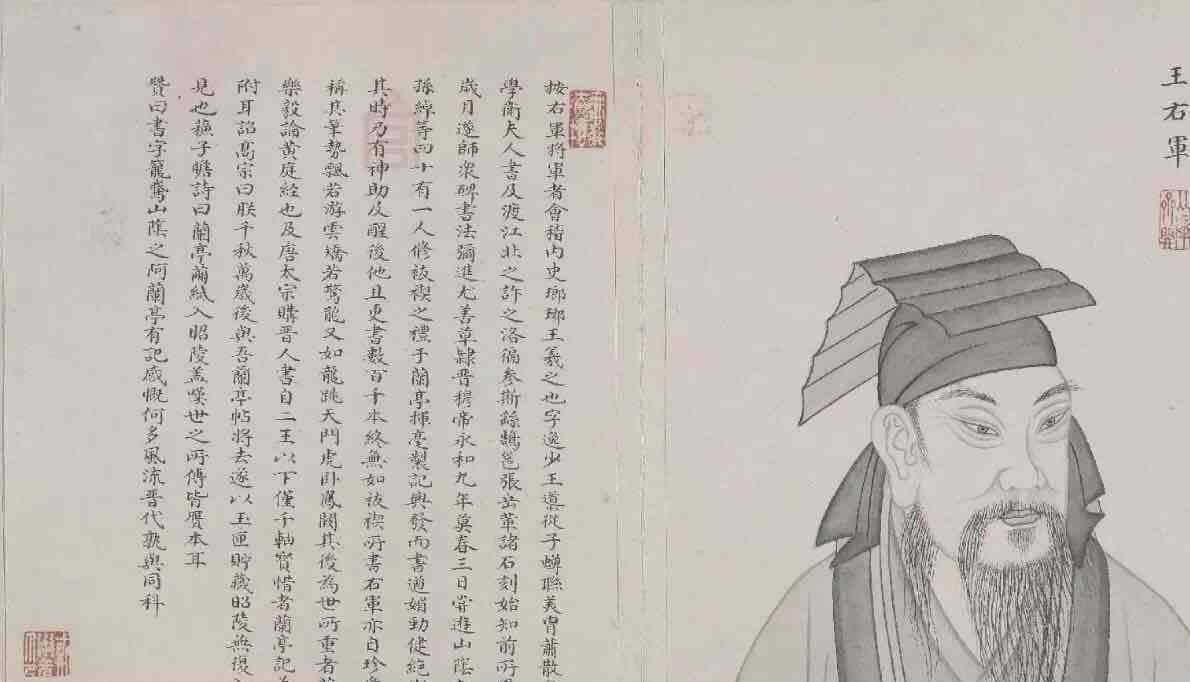 王右軍
按右軍將軍者會稽內史瑯瑯王羲之也字逸少王導從子蟬聯美冑蕭散
學衛夫人書及渡江北之許之洛徧參斯繇鵠邕張岳華諸石刻始知前所
歲月遂師衆碑書法彌進尤善草隸晉穆帝永和九年莫春三日嘗遊山陰
孫綽等四十有一人修祓禊之禮于蘭亭揮毫製記興發而書遒媚勁健絕
其時乃有神助及醒後他日更書數百十本終無如祓禊所書右軍亦自珍
稱其筆勢飄若游雲矯若驚龍又如龍跳天門虎卧鳳闕其後為世所重者
樂毅論黃庭經也及唐太宗購晉人書自二王以下僅千軸寶惜者蘭亭記
附耳詔高宗曰朕千秋萬歲後與吾蘭亭帖將去遂以玉匣貯藏昭陵無復
見也蘇子瞻詩曰蘭亭繭紙入昭陵蓋嘆世之所傳皆贋本耳
贊曰書字籠鵞山陰之阿蘭亭有記感慨何多風流晉代孰與同科